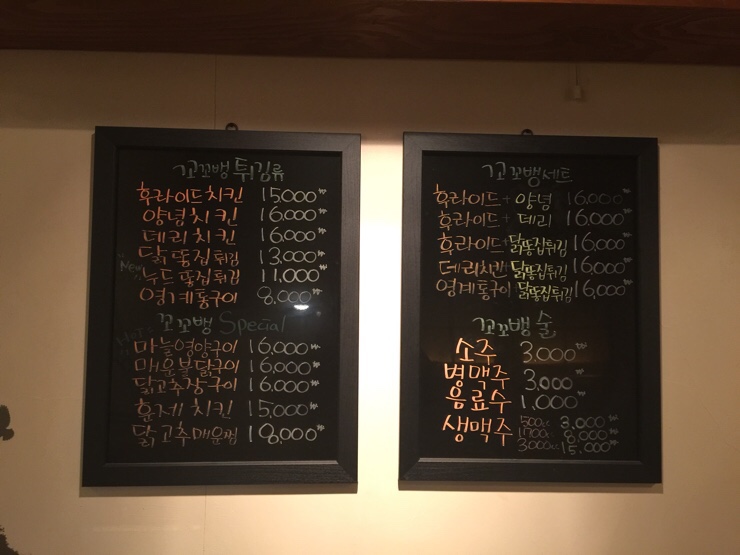 꼬꼬뱅 튀김류
후라이드치킨 15,000₩
양념치킨 16,000₩
데리치킨 16,000₩
닭똥집튀김 13,000₩
New 누드똥집튀김 11,000₩
영계통구이 8,000₩
꼬꼬뱅 Special
마늘영양구이 16,000₩
매운불닭구이 16,000₩
닭고추장구이 16,000₩
훈제치킨 15,000₩
닭고추매운찜 18,000₩
꼬꼬뱅세트
후라이드+양념 16,000₩
후라이드+데리 16,000₩
후라이드+닭똥집튀김 16,000₩
데리치킨+닭똥집튀김 16,000₩
영계통구이+닭똥집튀김 16,000₩
꼬꼬뱅술
소주 3,000₩
병맥주 3,000₩
음료수 1,000₩
생맥주 500cc 3,000₩
1700cc 8,000₩
3000cc 15,000₩